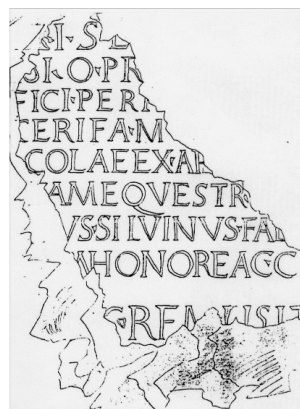 I·S
SI·O·PR
FICI·PERI
ERI·FA·M
COLAE·EX·AR
AM·EQVESTR
VS·SILVINVS·FA
HONORE·ACC
REM